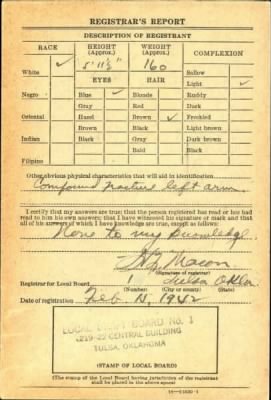 REGISTRAR'S REPORT
DESCRIPTION OF REGISTRANT
RACE HEIGHT (Approx.) WEIGHT (Approx.) COMPLEXION
5' 11½" 160
White ✓ Sallow
EYES HAIR Light ✓
Negro Blue ✓ Blonde Ruddy
Gray Red Dark
Oriental Hazel Brown ✓ Freckled
Brown Black Light brown
Indian Black Gray Dark brown
Bald Black
Filipino
Other obvious physical characteristics that will aid in identification
Compound fracture left arm
I certify that my answers are true; that the person registered has read or has had
read to him his own answers; that I have witnessed his signature or mark and that
all of his answers of which I have knowledge are true, except as follows:
None to my knowledge
Mason
(Signature of registrar)
Registrar for Local Board 1 Tulsa Okla
(Number) (City or county) (State)
Date of registration Feb 16, 1942
LOCAL DRAFT BOARD No. 1
219-22 CENTRAL BUILDING
TULSA, OKLAHOMA
(STAMP OF LOCAL BOARD)
(The stamp of the Local Board having jurisdiction of the registrant
shall be placed in the above space)